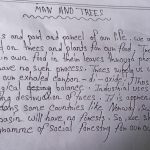 MAN AND TREES
s and part and parcel of am life. we a
on trees and plants for our food. The
n own food in their leaves through pho
have no such process. Trees supply us o
our exhaled carbon-di-oxide. Thus
logical balance. Industrial uses
destruction of trees. It is appre
some countries like
basin will have no forests. So we sh
ogramme of Social forestry for our ow